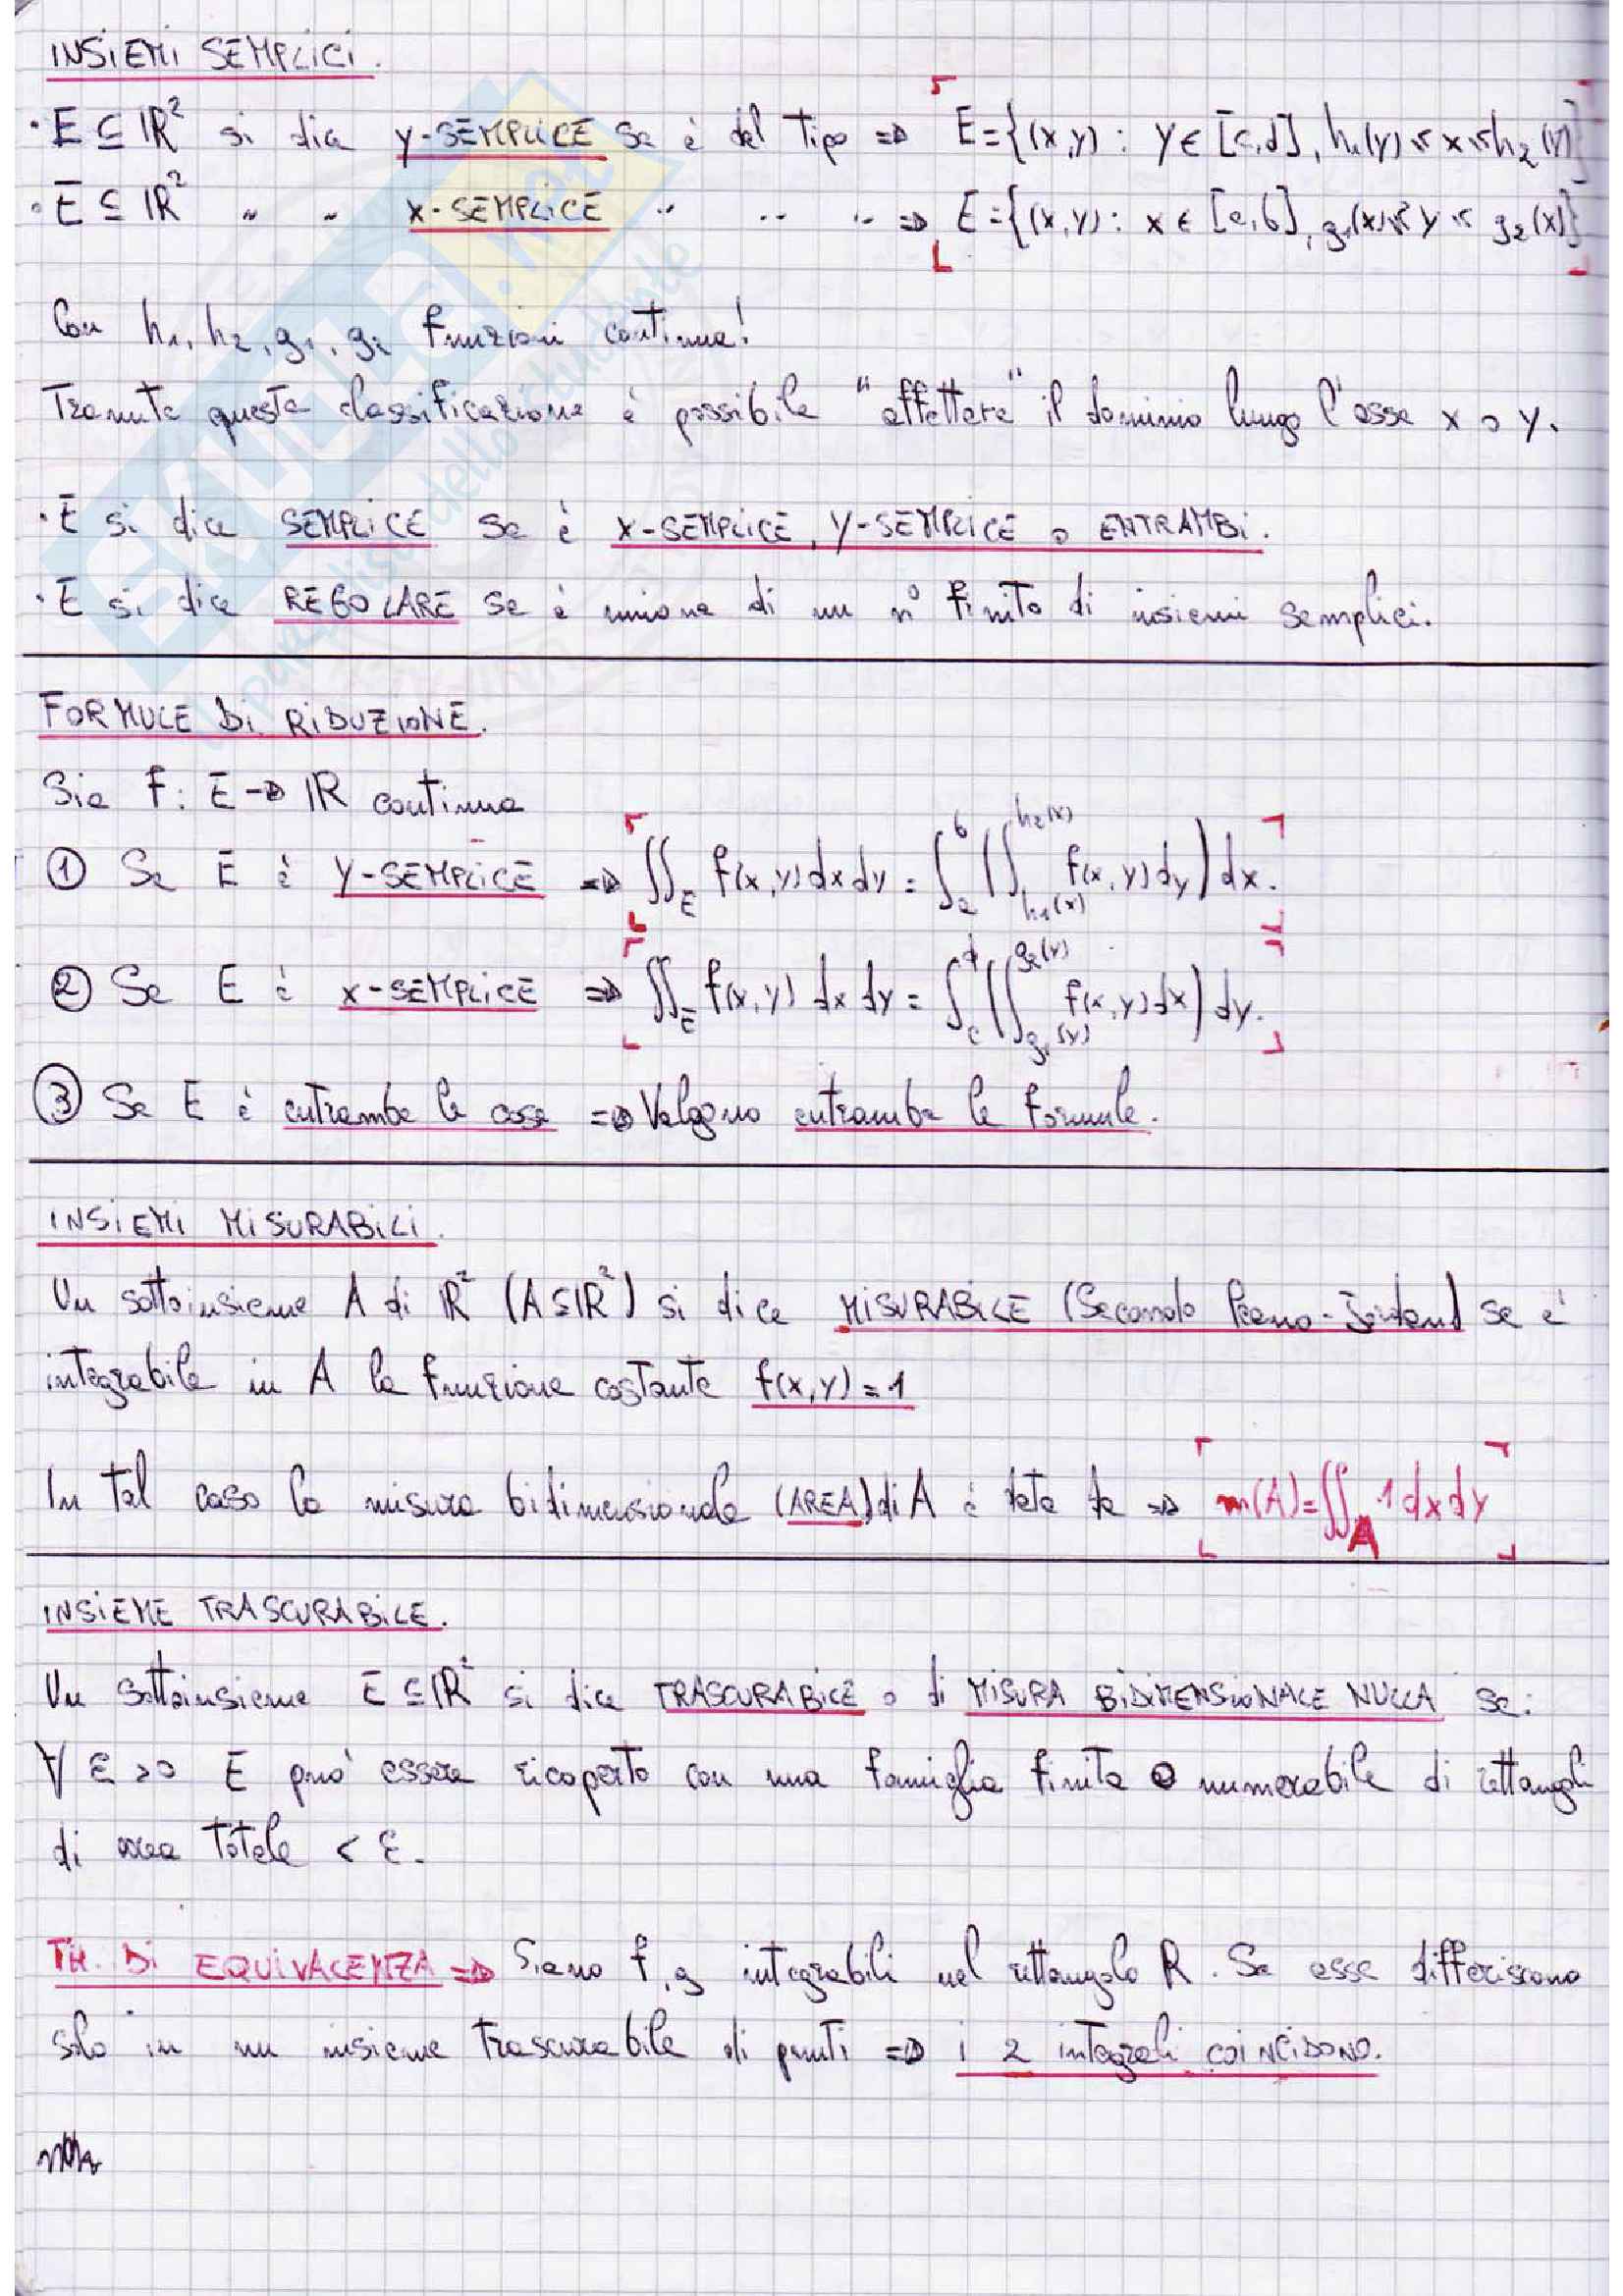 INSIEMI SEMPLICI.
• E ⊆ ℝ² si dice y-SEMPLICE se è del tipo ⇒ E={(x,y): y∈[c,d], h₁(y)≤x≤h₂(y)}
• E ⊆ ℝ² " " x-SEMPLICE " " " ⇒ E={(x,y): x∈[a,b], g₁(x)≤y≤g₂(x)}
Con h₁, h₂, g₁, g₂ funzioni continue!
Tramite questa classificazione è possibile "affettare" il dominio lungo l'asse x o y.
• E si dice SEMPLICE se è x-SEMPLICE, y-SEMPLICE o ENTRAMBI.
• E si dice REGOLARE se è unione di un n° finito di insiemi semplici.
FORMULE DI RIDUZIONE.
Sia f: E→ℝ continua
① Se E è y-SEMPLICE ⇒ ∬_E f(x,y)dxdy = ∫_a^b (∫_{h₁(x)}^{h₂(x)} f(x,y)dy)dx.
② Se E è x-SEMPLICE ⇒ ∬_E f(x,y) dx dy = ∫_c^d (∫_{g₁(y)}^{g₂(y)} f(x,y)dx)dy.
③ Se E è entrambe le cose ⇒ Valgono entrambe le formule.
INSIEMI MISURABILI.
Un sottoinsieme A di ℝ² (A⊆ℝ²) si dice MISURABILE (Secondo Peano-Jordan) se è
integrabile in A la funzione costante f(x,y)=1
In tal caso la misura bidimensionale (AREA) di A è data da ⇒ m(A)=∬_A 1 dxdy
INSIEME TRASCURABILE.
Un sottoinsieme E⊆ℝ² si dice TRASCURABILE o di MISURA BIDIMENSIONALE NULLA se:
∀ε>0 E può essere ricoperto con una famiglia finita o numerabile di rettangoli
di area totale < ε.
TH. DI EQUIVALENZA ⇒ Siano f,g integrabili nel rettangolo R. Se esse differiscono
solo in un insieme trascurabile di punti ⇒ i 2 integrali COINCIDONO.